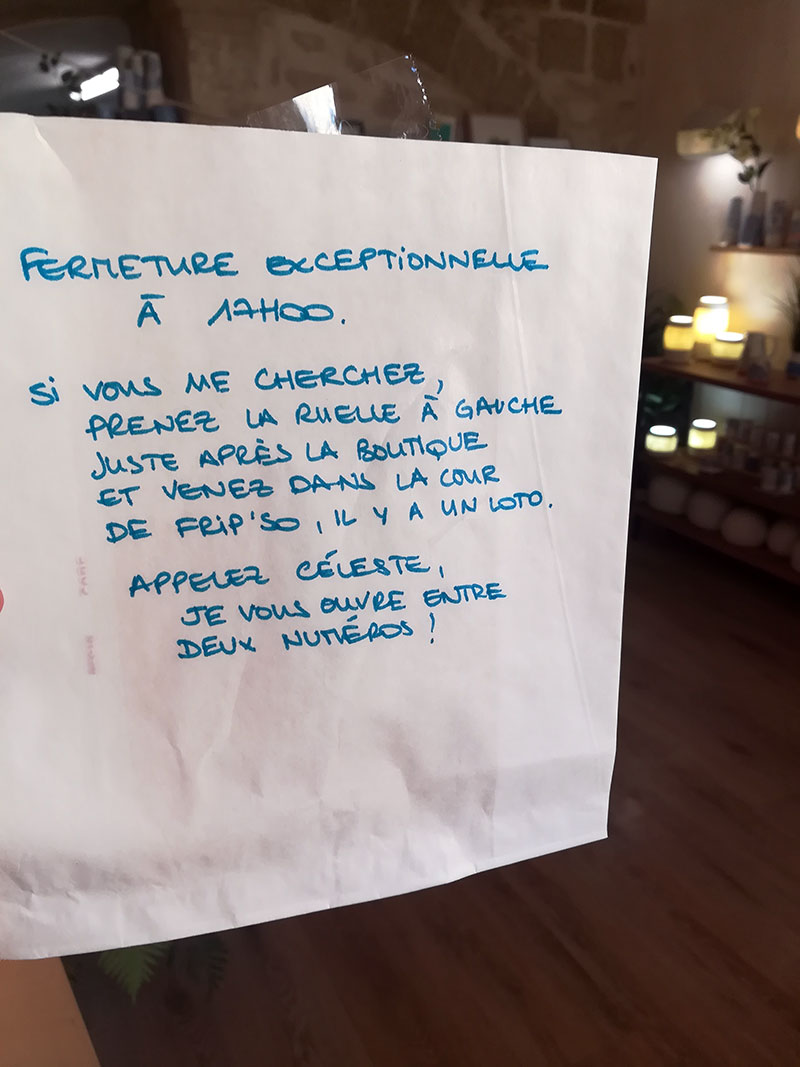 FERMETURE EXCEPTIONNELLE
À 17H00.
Si VOUS ME CHERCHEZ,
PRENEZ LA RUELLE À GAUCHE
JUSTE APRÈS LA BOUTIQUE
ET VENEZ DANS LA COUR
DE FRiP'SO, IL Y A UN LOTO.
APPELEZ CÉLESTE,
JE VOUS OUVRE ENTRE
DEUX NUMÉROS !